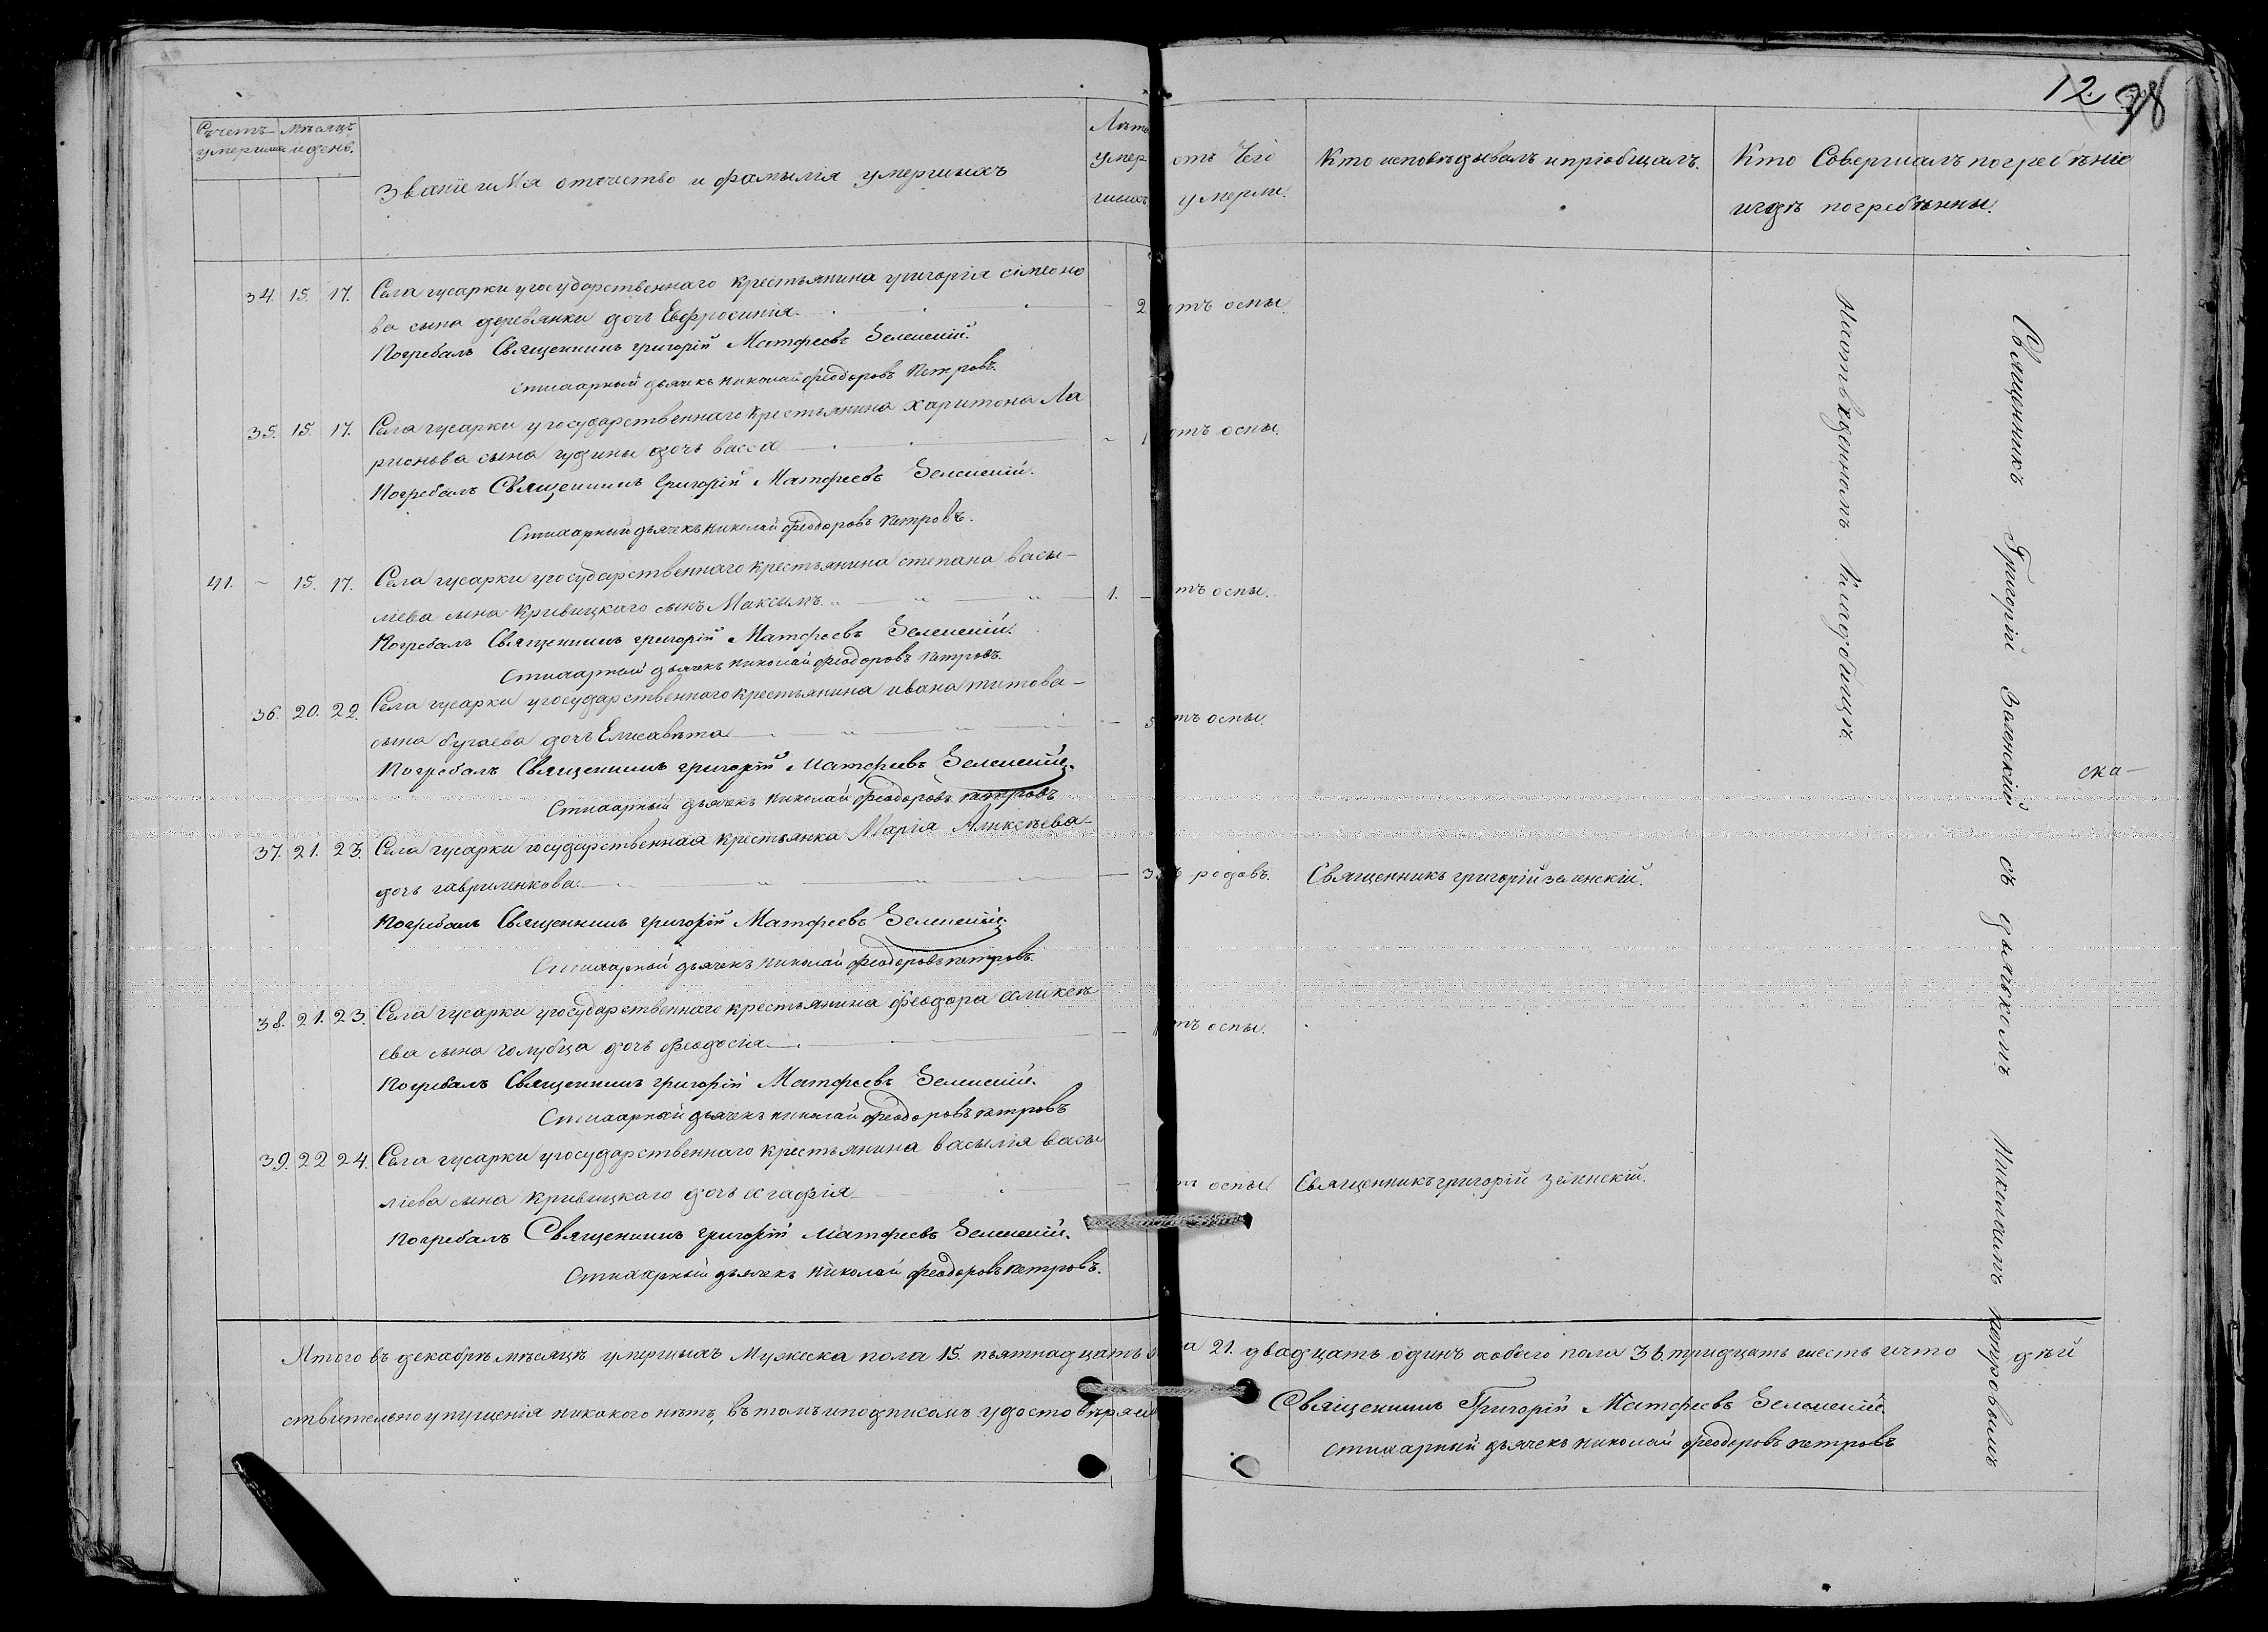 12. 98
Счетъ умершихъ
Мѣсяцъ и день.
Званіе имя отчество и фамылія умершихъ
Лѣта умершихъ
отъ Чего умерли.
Кто исповѣдывалъ и пріобщалъ.
Кто Совершалъ погребѣніе
игдѣ погребѣнны.
34. 15. 17. Села гусарки у государственнаго крестьянина григорія сімеоно
ва сына деревянки дочь Евфросинія. — 2 отъ оспы.
Погребалъ Священникъ григорій Матфеевъ Зеленскій.
Стихарный дьячекъ николай феодоровъ Петровъ.
35. 15. 17. Села гусарки у государственнаго крестьянина харитона Ла
рионова сына гудины дочь васса — 1 отъ оспы.
Погребалъ Священникъ Григорій Матфеевъ Зеленскій.
Стихарный дьячекъ николай феодоровъ петровъ.
41. — 15. 17. Села гусарки у государственнаго крестьянина степана васы-
ліева сына кривицкаго сынъ Максимъ 1. — тъ оспы.
Погребалъ Священникъ григорій Матфеевъ Зеленскій.
Стихарный дьячекъ николай феодоровъ петровъ.
36. 20. 22. Села гусарки у государственнаго крестьянина ивана титова-
сына бугаева дочь Елисавѣта — 5 тъ оспы.
Погребалъ Священникъ григорій Матфеевъ Зеленскій.
Стихарный дьячекъ николай феодоровъ петровъ
37. 21. 23. Села гусарки государственная крестьянка Марія Аликсѣева-
дочь гавриленкова — 3 ъ родовъ. Священникъ григорій зеленскій.
Погребалъ Священникъ григорій Матфеевъ Зеленскій.
Стихарный дьячекъ николай феодоровъ петровъ.
38. 21. 23. Села гусарки у государственнаго крестьянина феодора аликсѣ
ева сына голубца дочь феодосія. — тъ оспы.
Погребалъ Священникъ григорій Матфеевъ Зеленскій.
Стихарный дьячекъ николай феодоровъ петровъ
39. 22 24. Села гусарки у государственнаго крестьянина васылія васы
ліева сына кривицкаго дочь агафія — тъ оспы. Священникъ григорій зеленскій.
Погребалъ Священникъ григорій Матфеевъ Зеленскій.
Стихарный дьячекъ николай феодоровъ петровъ.
кладбищѣ.
Священникъ Григорій Зеленскій съ дьячкомъ Николаемъ петровымъ
ска-
Итого въ декабрѣ мѣсяцѣ умершихъ Мужеска пола 15. пьятнадцать
а 21. двадцать одинъ аобоего пола 36. тридцать шесть ичто дѣй
ствительно упущенія никакого нѣтъ, вътомъ иподписомъ удостовѣряемъ
Священникъ Григорій Матфеевъ Зеленскій.
стихарный дьячекъ николай феодоровъ петровъ